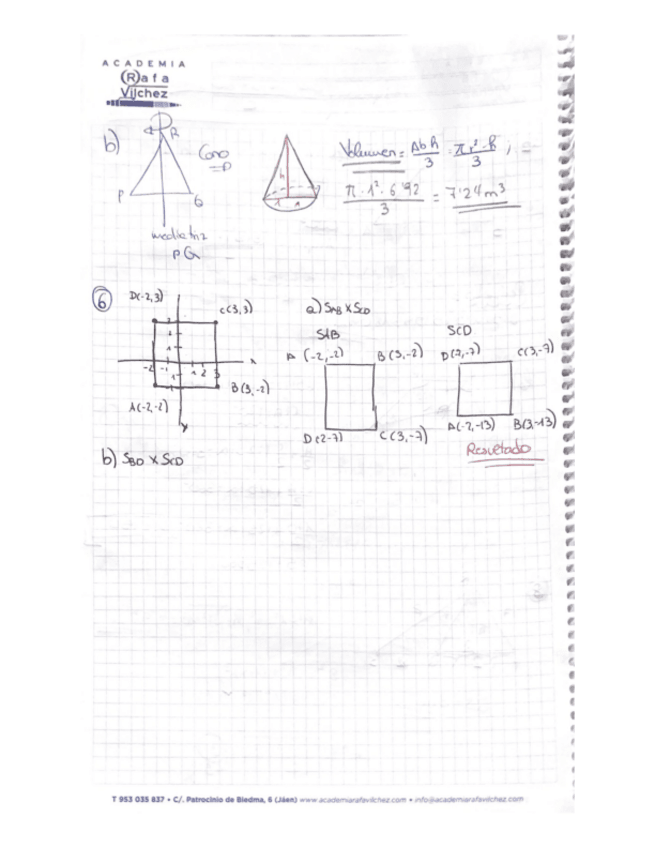 ACADEMIA
(R)afa
Vílchez
b)
R
Cono
P
Q
mediatriz
PQ
h
Volumen = Ab h / 3 = π r² · h / 3 ; =
π · 1² · 6'92 / 3 = 7'24 m³
6
D(-2,3)
C(3,3)
B(3,-2)
A(-2,-2)
a) SAB x SCD
SAB
A (-2,-2) B(3,-2)
D(-2-7) C(3,-7)
SCD
C(3,-7)
A(-2,-13) B(3,-13)
Resultado
b) SBD x SCD
T 953 035 837 • C/. Patrocinio de Biedma, 6 (Jáen) www.academiarafavilchez.com • info@academiarafavilchez.com